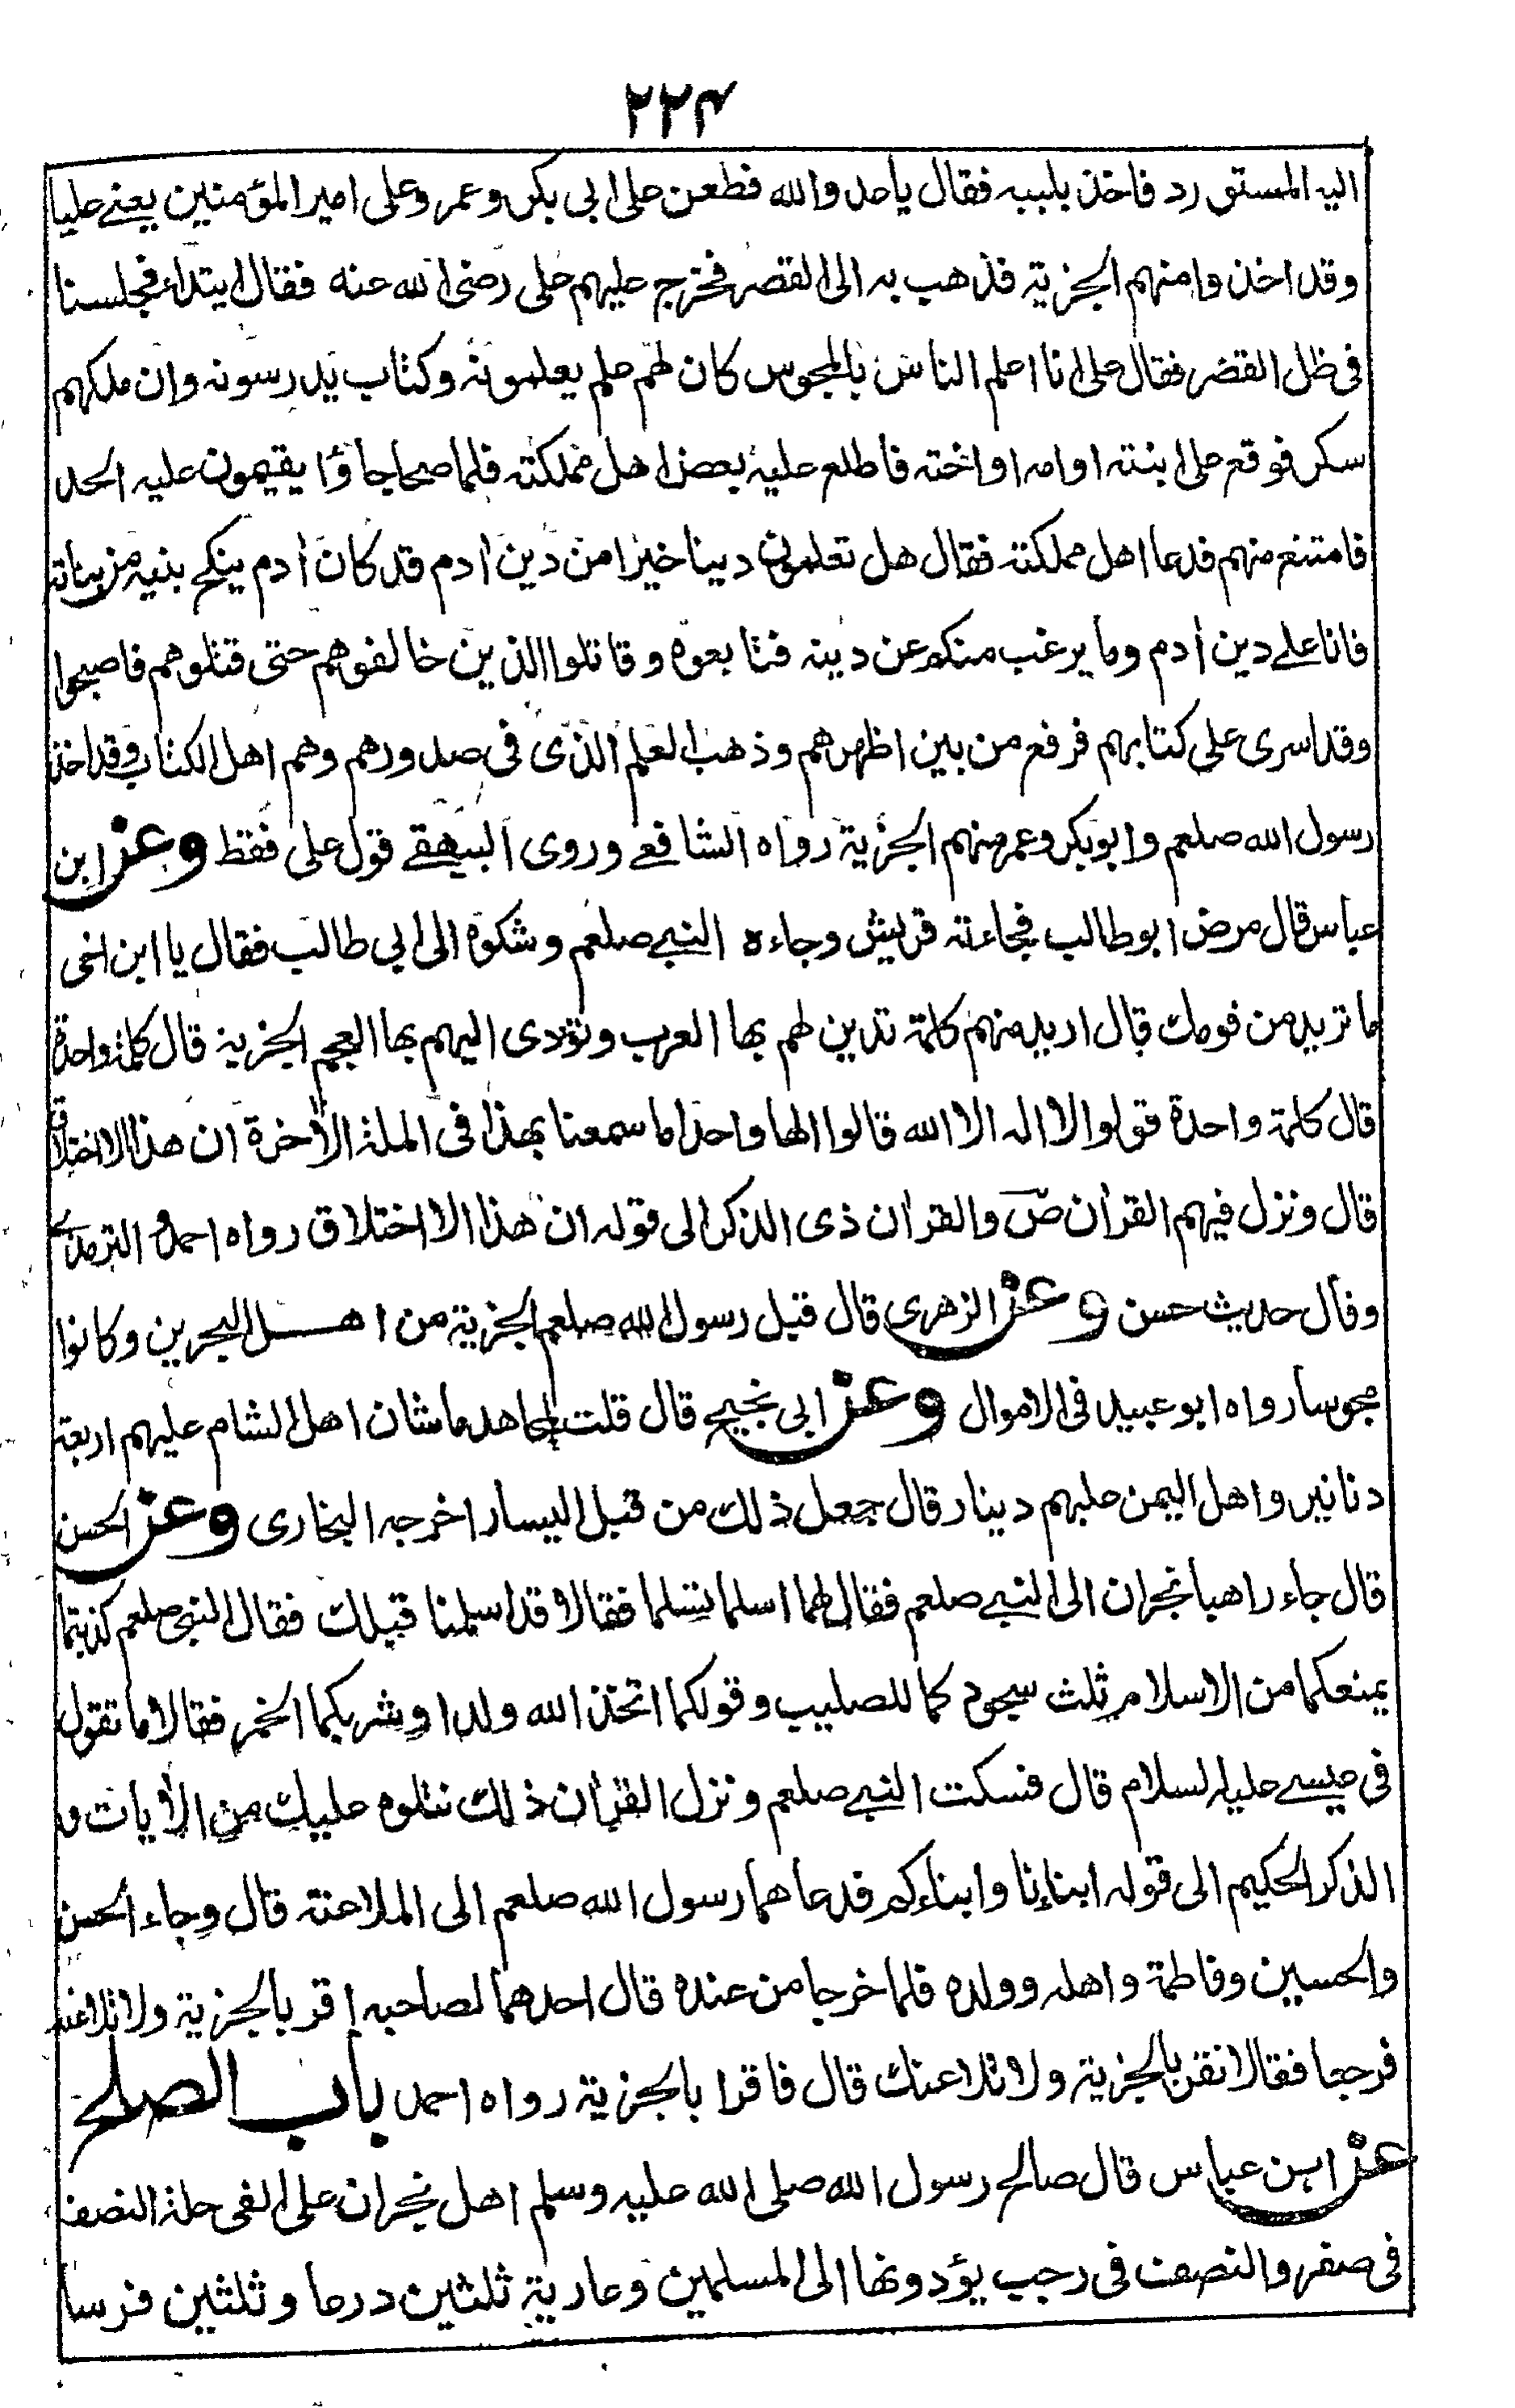 ٢٢٤
اليه المستورد فاخذ بلببه فقال يا عدو الله فطعن على ابى بكر وعمر وعلى امير المؤمنين يعنے عليا
وقد اخذوا منهم الجزية فذهب به الى القصر فخرج عليهم على رضى الله عنه فقال ابتداء فجلسنا
فى ظل القصر فقال على انا اعلم الناس بالمجوس كان لهم علم يعلمونه وكتاب يدرسونه وان ملكهم
سكر فوقع على ابنته او امه او اخته فاطلع عليه بعض اهل مملكته فلما صحا جاؤا يقيمون عليه الحد
فامتنع منهم فدعا اهل مملكته فقال هل تعلمون دينا خيرا من دين اٰدم قد كان اٰدم ينكح بنيه من بناته
فانا علے دين اٰدم وما يرغب منكم عن دينه فتابعوه وقاتلوا الذين خالفوهم حتى قتلوهم فاصبحوا
وقد اسرى على كتابهم فرفع من بين اظهرهم وذهب العلم الذى فى صدورهم وهم اهل الكتاب وقد اخذ
رسول الله صلعم وابوبكر وعمر منهم الجزية رواه الشافعے وروى البيهقے قول على فقط وعن ابن
عباس قال مرض ابو طالب فجاءته قريش وجاءه النبے صلعم وشكوه الى ابى طالب فقال يا ابن اخى
ما تريد من قومك قال اريد منهم كلمة تدين لهم بها العرب وتؤدى اليهم بها العجم الجزية قال كلمة واحدة
قال كلمة واحدة قولوا لا اله الا الله قالوا الها واحدا ما سمعنا بهذا فى الملة الاٰخرة ان هذا الا اختلاق
قال ونزل فيهم القراٰن صٓ والقراٰن ذى الذكر الى قوله ان هذا الا اختلاق رواه احمد و الترمذے
وقال حديث حسن وعن الزهرى قال قبل رسول الله صلعم الجزية من اهل البحرين وكانوا
مجوسا رواه ابو عبيد فى الاموال وعن ابى نجيح قال قلت لمجاهد ما شان اهل الشام عليهم اربعة
دنانير واهل اليمن عليهم دينار قال جعل ذلك من قبل اليسار اخرجه البخارى وعن الحسن
قال جاء راهبا نجران الى النبے صلعم فقال لهما اسلما تسلما فقالا قد اسلمنا قبلك فقال النبى صلعم كذبتما
يمنعكما من الاسلام ثلث سجودكما للصليب وقولكما اتخذ الله ولدا وشربكما الخمر فقالا ما تقول
فى عيسے عليه السلام قال فسكت النبے صلعم ونزل القراٰن ذلك نتلوه عليك من الاٰيات و
الذكر الحكيم الى قوله ابناءنا وابناءكم فدعاهما رسول الله صلعم الى الملاعنة قال وجاء الحسن
والحسين وفاطمة واهله وولده فلما خرجا من عنده قال احدهما لصاحبه اقر بالجزية ولا تلاعنه
فرجعا فقالا نقر بالجزية ولا نلاعنك قال فاقرا بالجزية رواه احمد باب الصلح
عن ابن عباس قال صالح رسول الله صلى الله عليه وسلم اهل نجران على الفى حلة النصف
فى صفر والنصف فى رجب يؤدونها الى المسلمين وعارية ثلثين درعا وثلثين فرسا